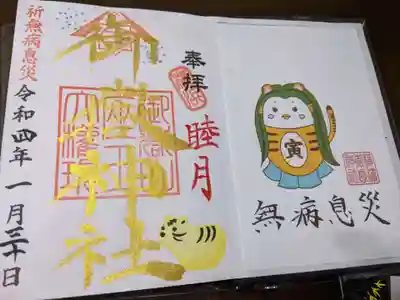 寅
無病息災
奉拝
睦月
御嶽神社
祈無病息災
令和四年一月三十日